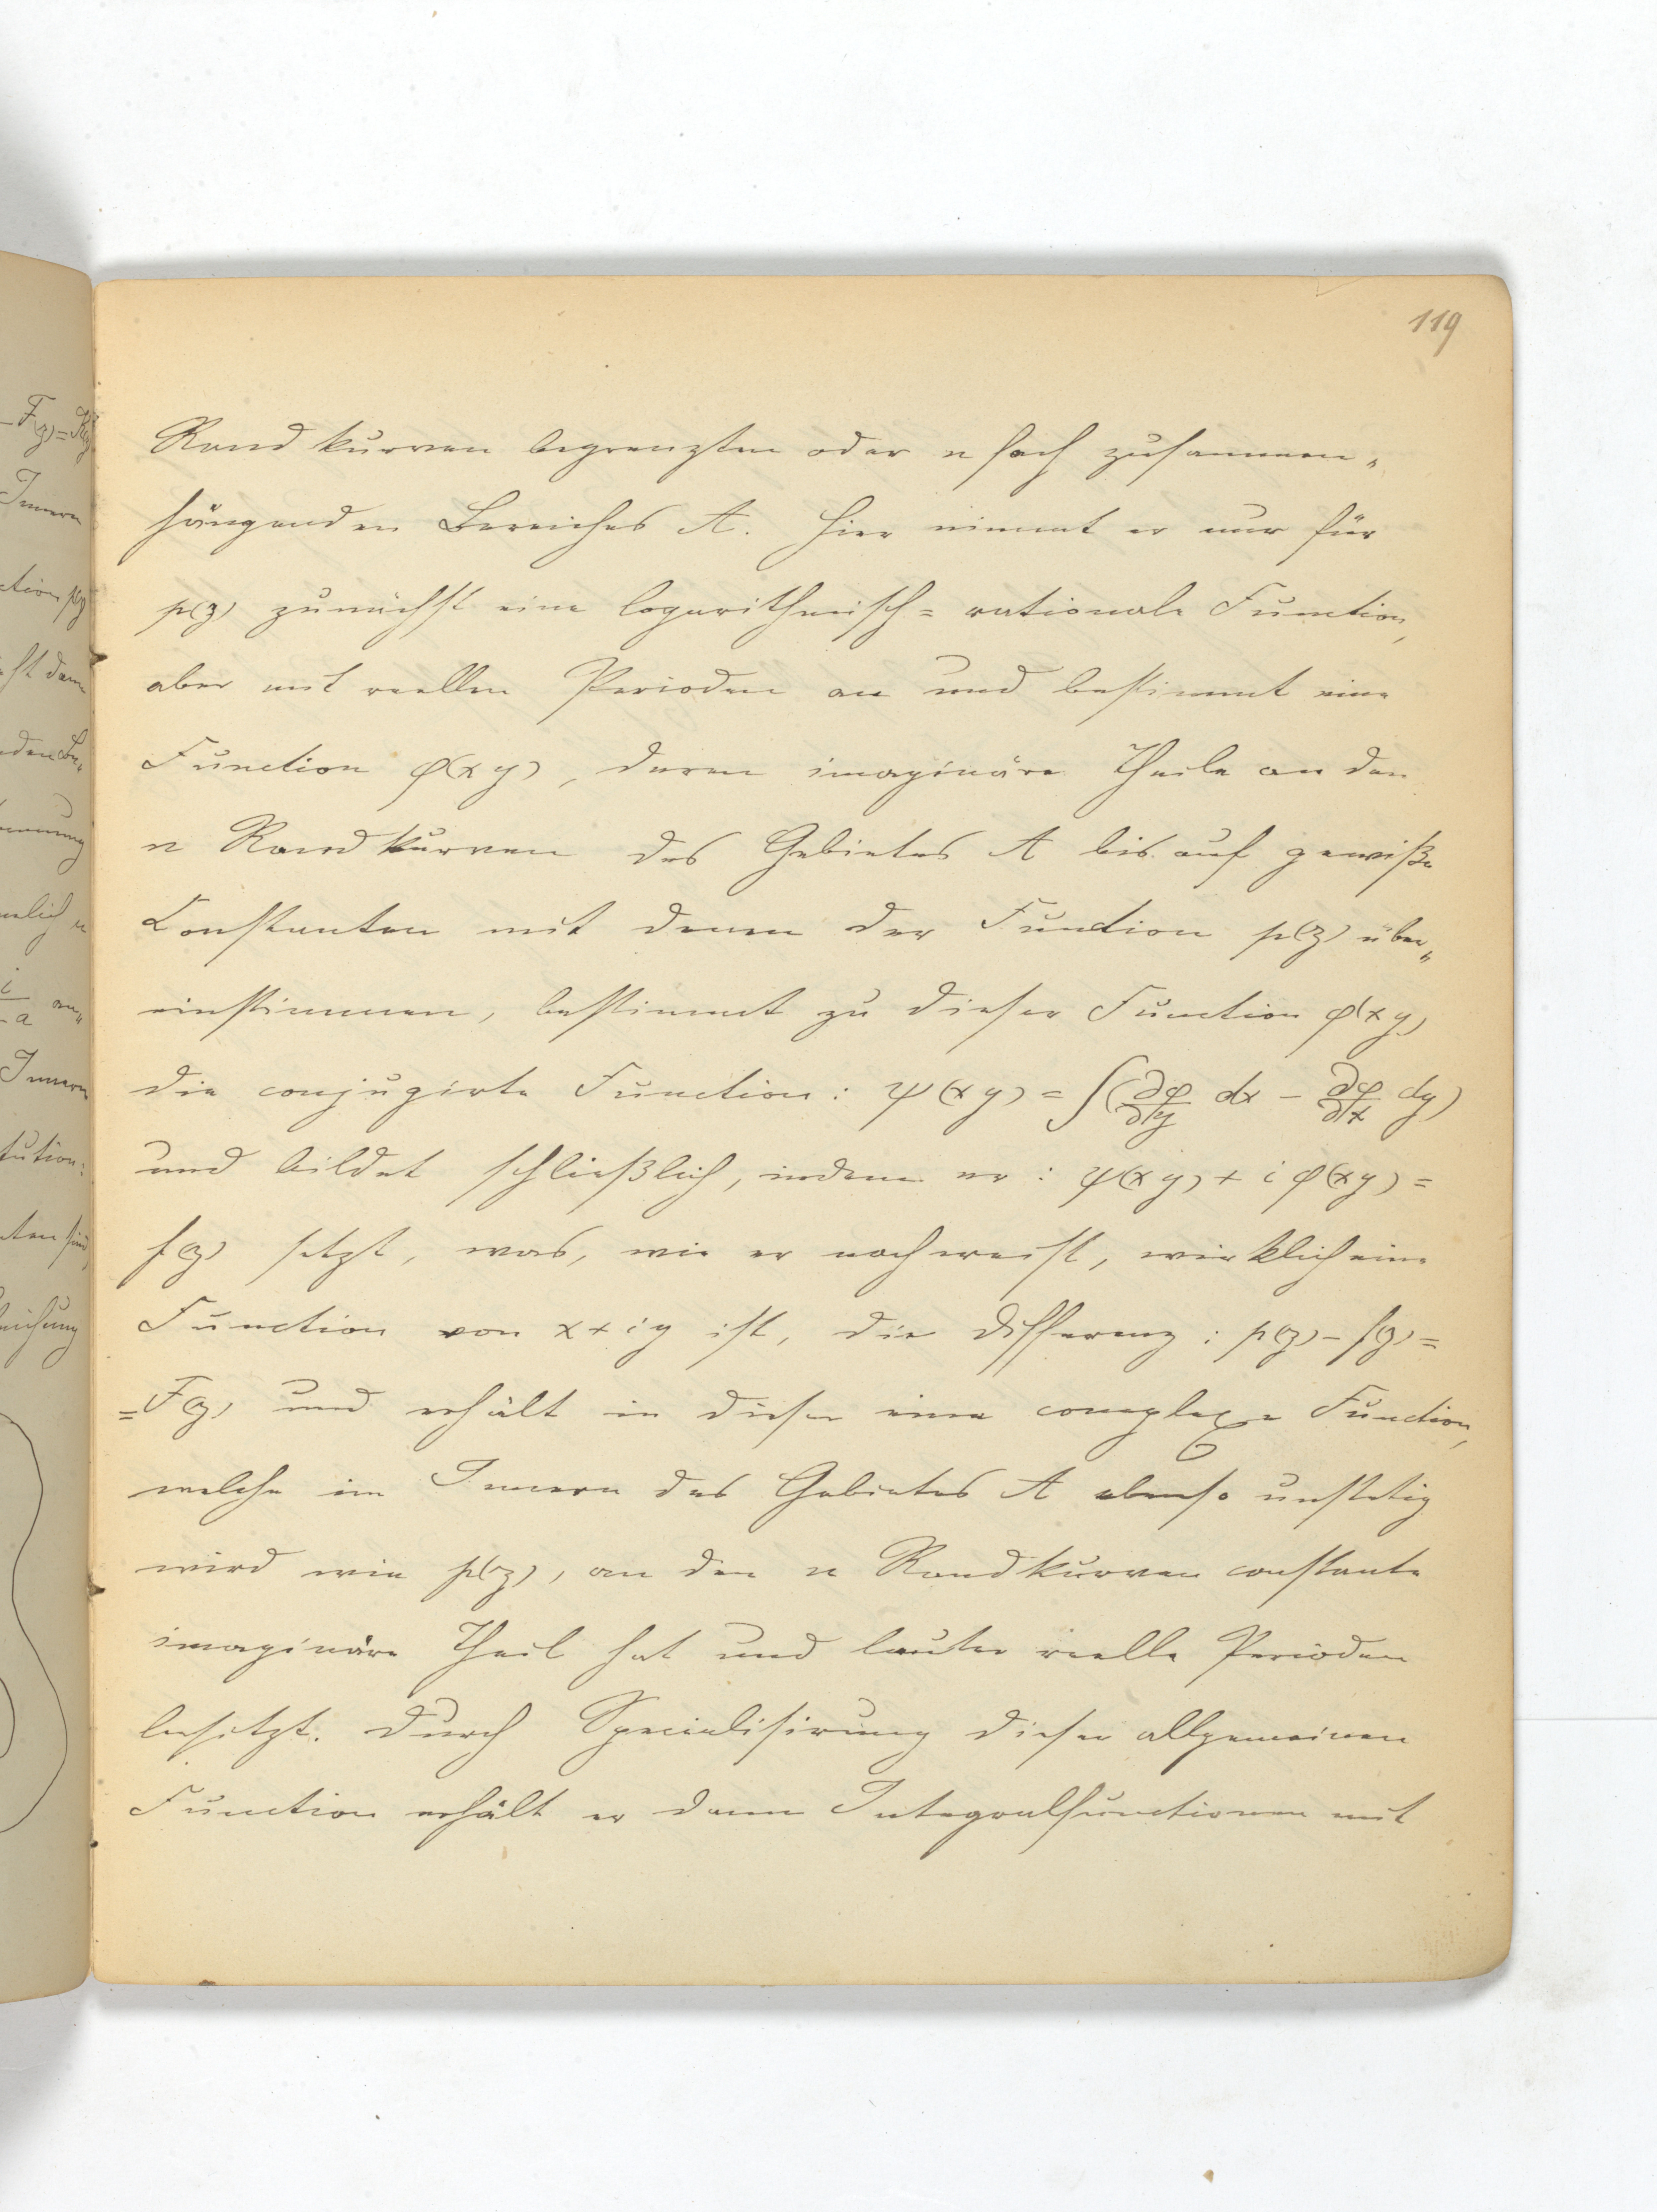 119
Randkurven begrenzten oder n fach zusammen„
hängenden Bereiches A. Hier nimmt er nur für
p(z) zunächst eine logarithmisch= rationale Function,
aber mit reellen Perioden an und bestimmt eine
Function φ(x y), deren imaginäre Theile an den
n Randkurven des Gebietes A bis auf gewiße
Constanten mit denen der Function p(z) über„
einstimmen, bestimmt zu dieser Function φ(x y)
die conjugirte Function: ψ(x y) = ∫(∂φ/∂y dx − ∂φ/∂x dy)
und bildet schließlich, indem er: ψ(x y) + i φ(x y) =
f(z) setzt, was, wie er nachweist, wirklich eine
Function von x + iy ist, die Differenz: p(z) − f(z) =
= F(z) und erhält in dieser eine complexe Function,
welche im Innern des Gebietes A ebenso unstetig
wird wie p(z), an den n Randkurven constante
imaginäre Theil hat und lauter reelle Perioden
besitzt. Durch Specialisirung dieser allgemeinen
Function erhält er dann Integralfunctionen mit